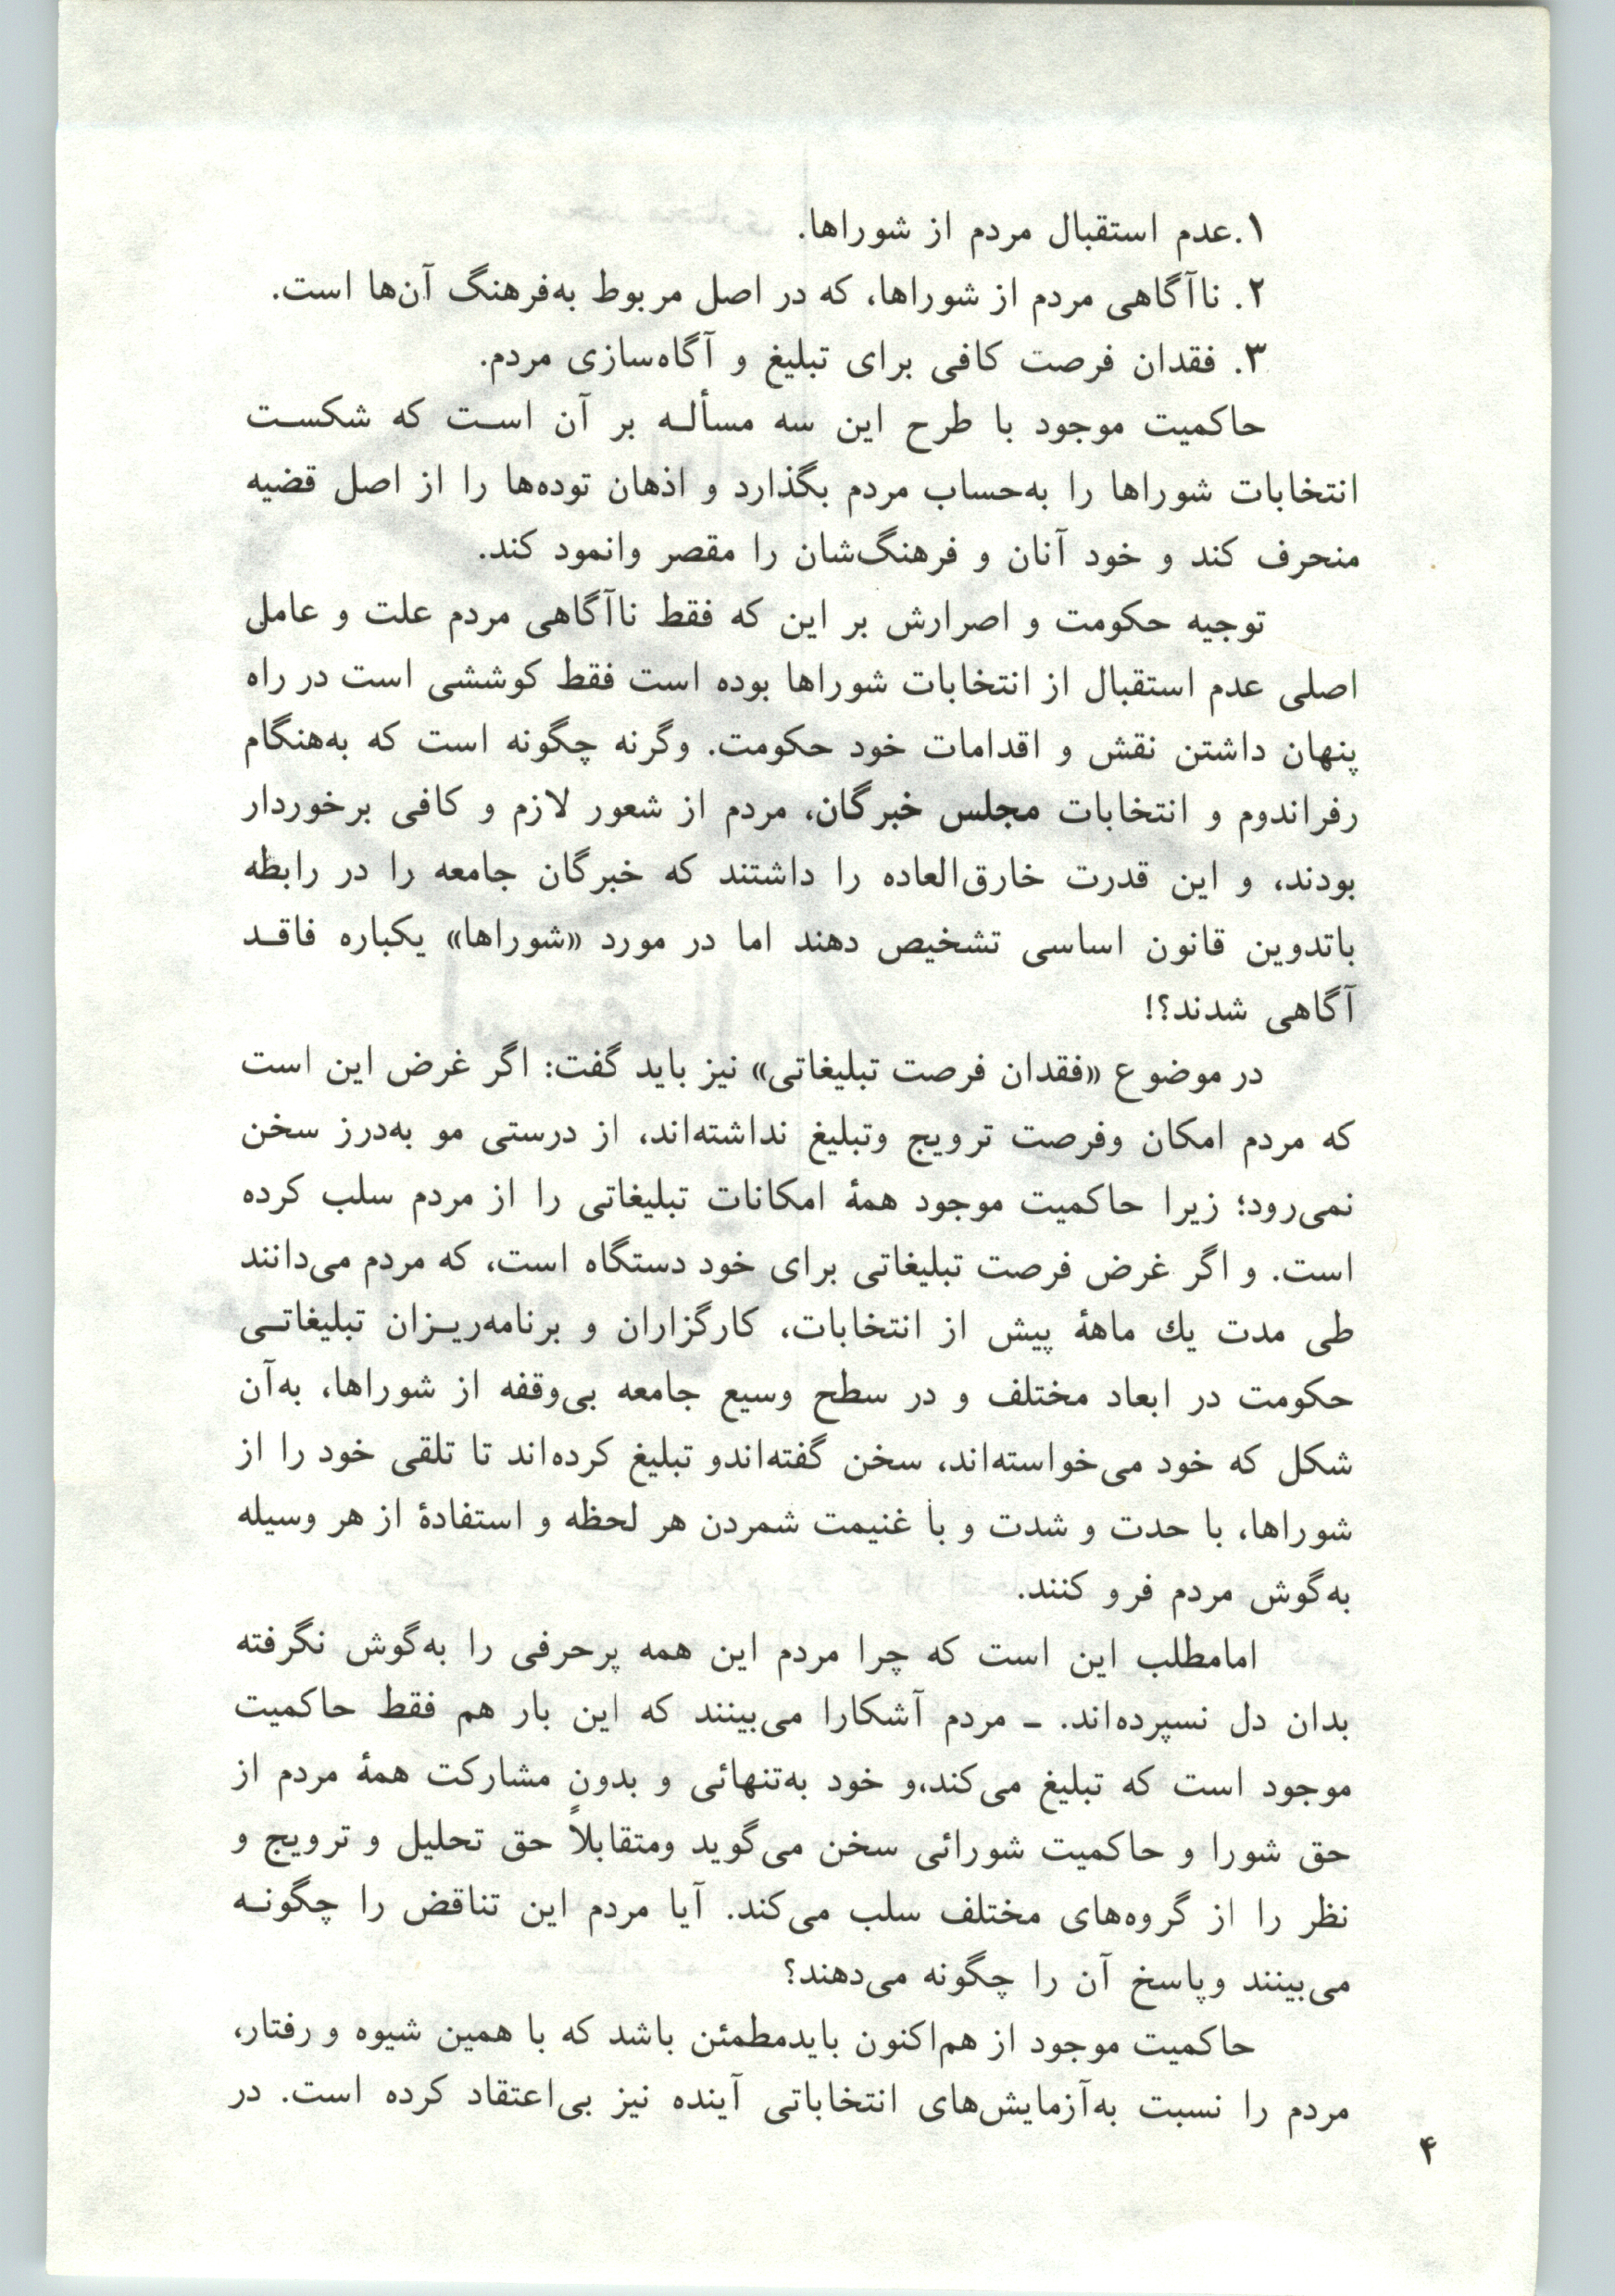 ۱.عدم استقبال مردم از شوراها.
۲. ناآگاهی مردم از شوراها، که در اصل مربوط به‌فرهنگ آن‌ها است.
۳. فقدان فرصت کافی برای تبلیغ و آگاه‌سازی مردم.
حاکمیت موجود با طرح این سه مسألـه بر آن اسـت که شکسـت
انتخابات شوراها را به‌حساب مردم بگذارد و اذهان توده‌ها را از اصل قضیه
منحرف کند و خود آنان و فرهنگ‌شان را مقصر وانمود کند.
توجیه حکومت و اصرارش بر این که فقط ناآگاهی مردم علت و عامل
اصلی عدم استقبال از انتخابات شوراها بوده است فقط کوششی است در راه
پنهان داشتن نقش و اقدامات خود حکومت. وگرنه چگونه است که به‌هنگام
رفراندوم و انتخابات مجلس خبرگان، مردم از شعور لازم و کافی برخوردار
بودند، و این قدرت خارق‌العاده را داشتند که خبرگان جامعه را در رابطه
باتدوین قانون اساسی تشخیص دهند اما در مورد «شوراها» یکباره فاقـد
آگاهی شدند؟!
در موضوع «فقدان فرصت تبلیغاتی» نیز باید گفت: اگر غرض این است
که مردم امکان وفرصت ترویج وتبلیغ نداشته‌اند، از درستی مو به‌درز سخن
نمی‌رود؛ زیرا حاکمیت موجود همهٔ امکانات تبلیغاتی را از مردم سلب کرده
است. و اگر غرض فرصت تبلیغاتی برای خود دستگاه است، که مردم می‌دانند
طی مدت یك ماههٔ پیش از انتخابات، کارگزاران و برنامه‌ریـزان تبلیغاتـی
حکومت در ابعاد مختلف و در سطح وسیع جامعه بی‌وقفه از شوراها، به‌آن
شکل که خود می‌خواسته‌اند، سخن گفته‌اندو تبلیغ کرده‌اند تا تلقی خود را از
شوراها، با حدت و شدت و با غنیمت شمردن هر لحظه و استفادهٔ از هر وسیله
به‌گوش مردم فرو کنند.
امامطلب این است که چرا مردم این همه پرحرفی را به‌گوش نگرفته
بدان دل نسپرده‌اند. ـ مردم آشکارا می‌بینند که این بار هم فقط حاکمیت
موجود است که تبلیغ می‌کند،و خود به‌تنهائی و بدونِ مشارکت همهٔ مردم از
حق شورا و حاکمیت شورائی سخن می‌گوید ومتقابلاً حق تحلیل و ترویج و
نظر را از گروه‌های مختلف سلب می‌کند. آیا مردم این تناقض را چگونـه
می‌بینند وپاسخ آن را چگونه می‌دهند؟
حاکمیت موجود از هم‌اکنون بایدمطمئن باشد که با همین شیوه و رفتار،
مردم را نسبت به‌آزمایش‌های انتخاباتی آینده نیز بی‌اعتقاد کرده است. در
۴